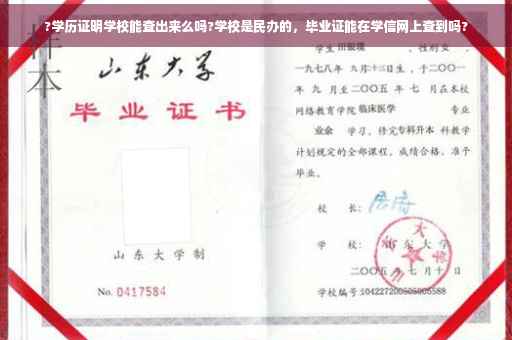 ?学历证明学校能查出来么吗?学校是民办的，毕业证能在学信网上查到吗?
样本
山东大学
毕业证书
山东大学制
No. 0417584
学生
性别
一九七八年 九月十三日生，于二〇〇一
年 九 月至二〇〇五 年 七 月在本校
网络教育学院 临床医学 专业
业余 学习，修完专科升本 科教学
计划规定的全部课程，成绩合格，准予
毕业。
校 长：
学 校： 山东大学
二〇〇五 年 七 月 十 日
学校编号:104227200505005588